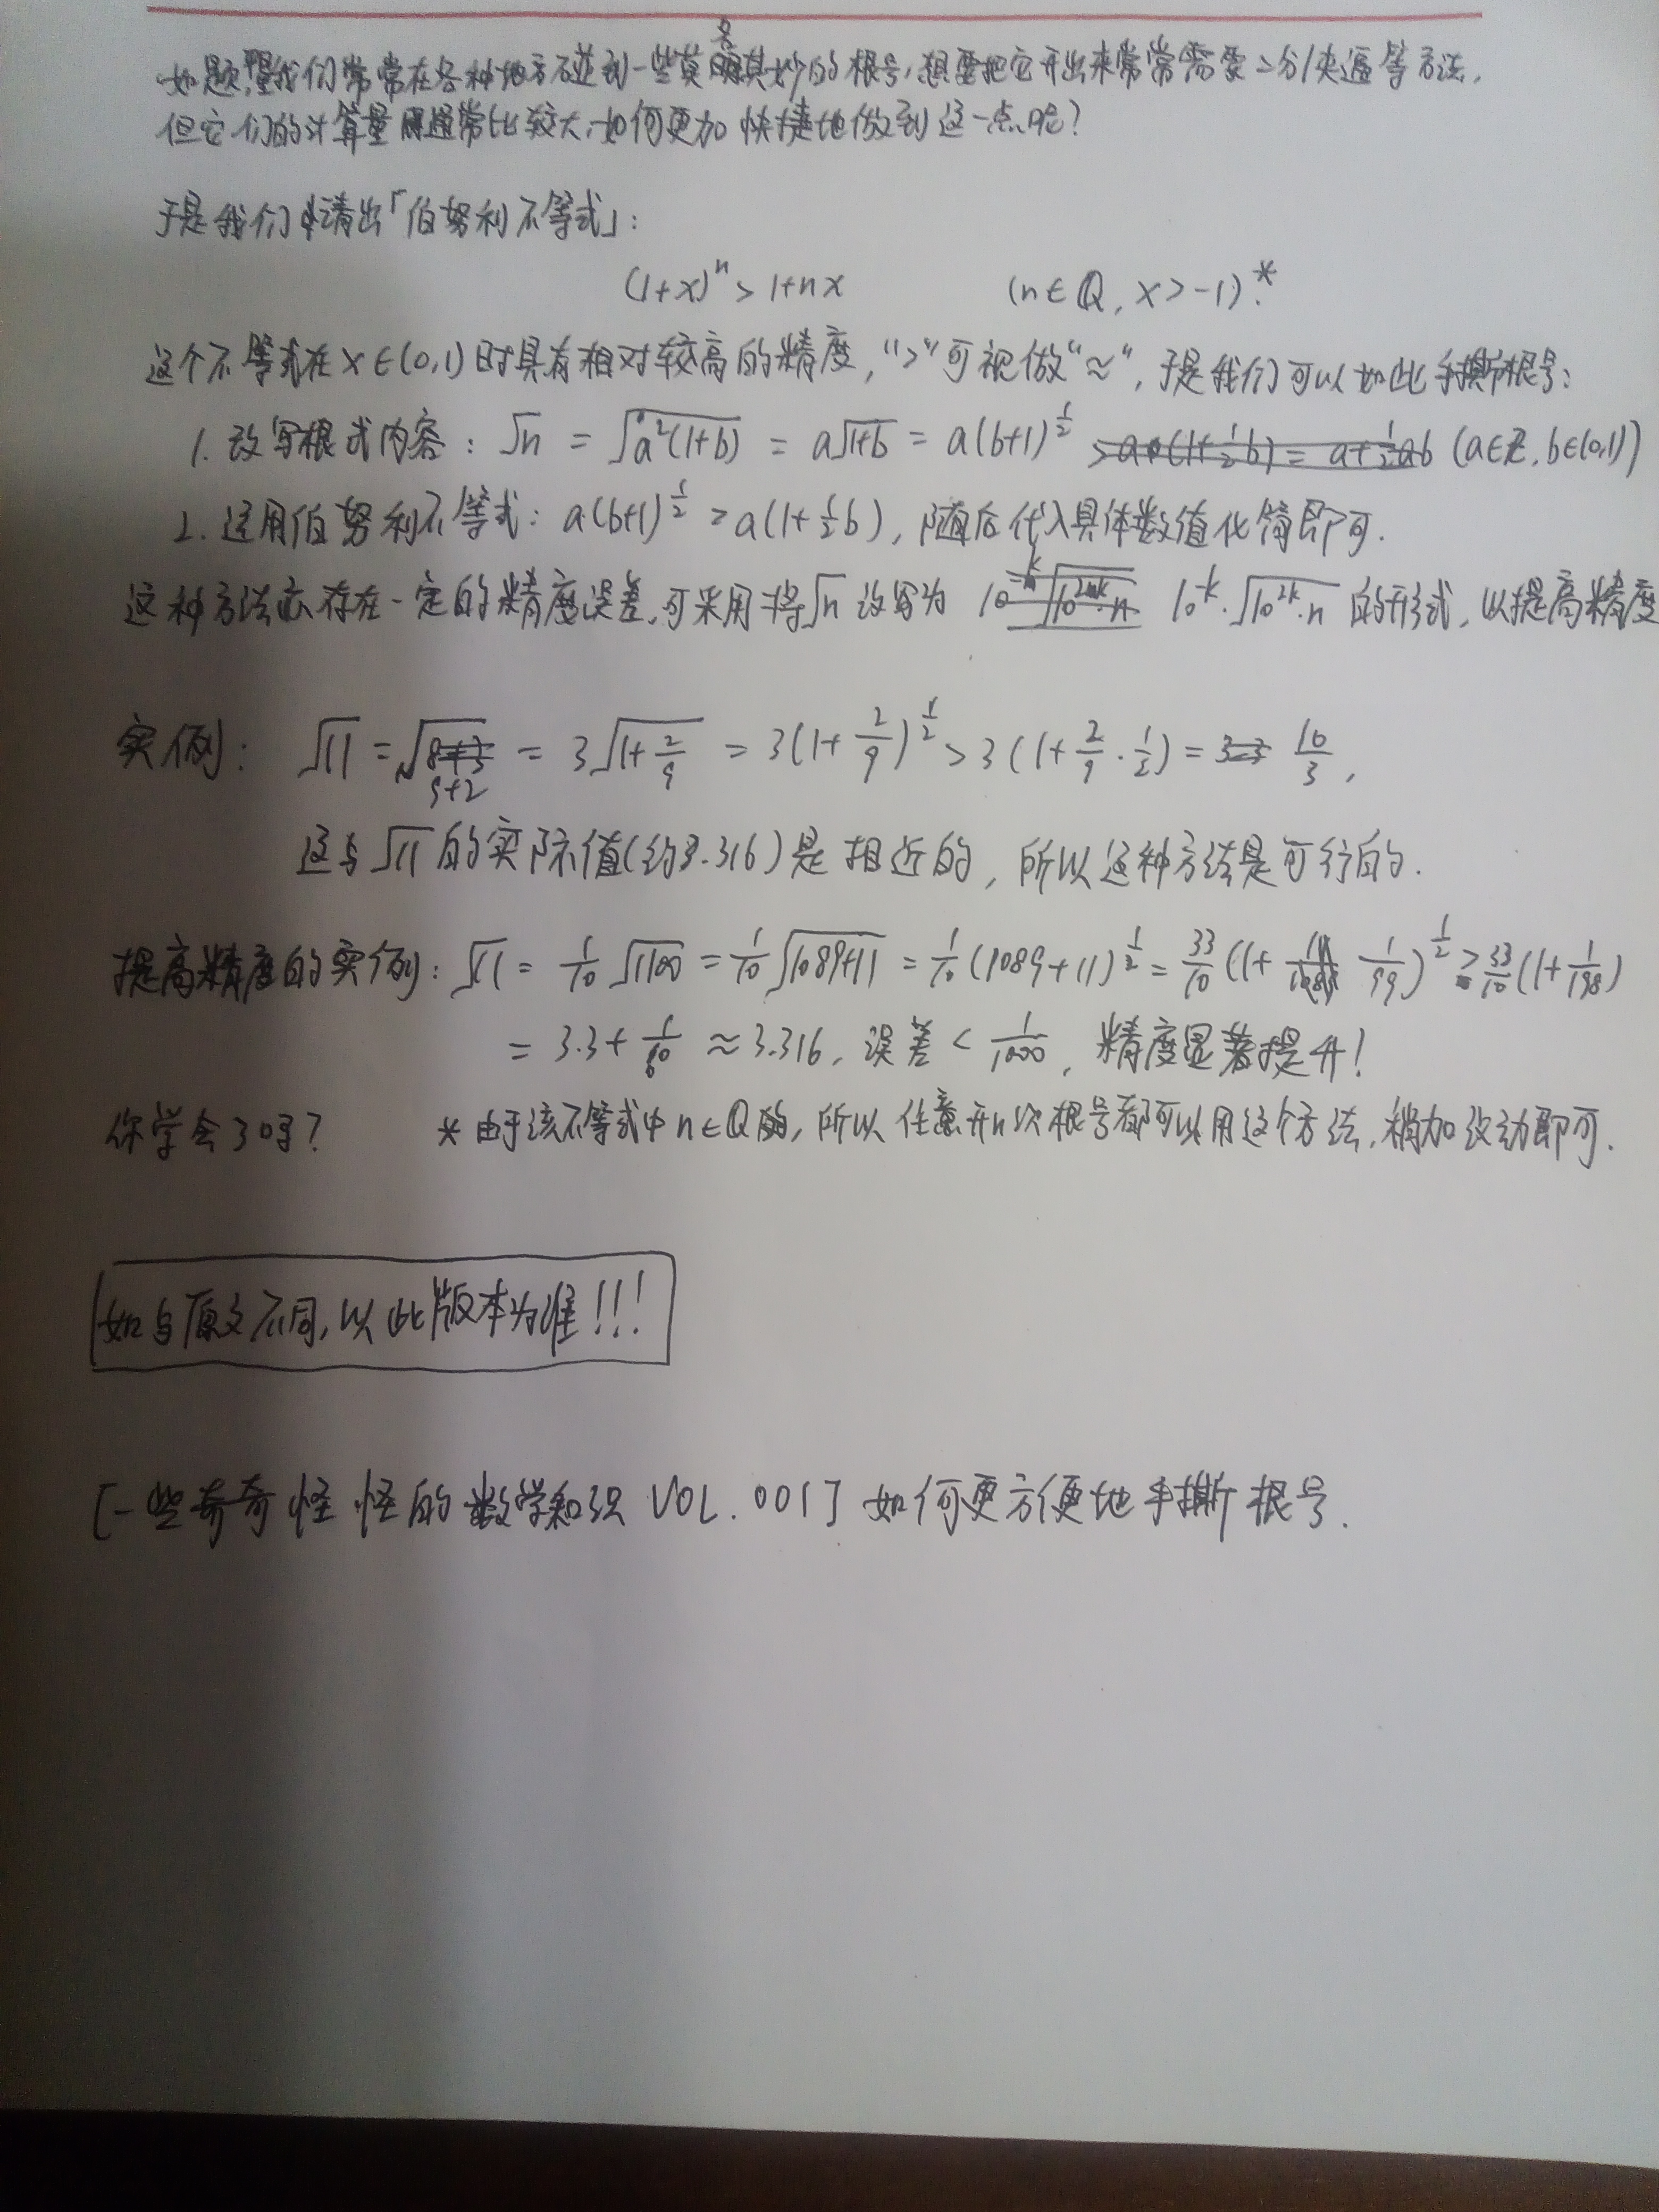 如题,我们常常在各种地方碰到一些莫名其妙的根号,想要把它开出来常常需要二分/夹逼等方法,
但它们的计算量通常比较大,如何更加快捷地做到这一点呢?
于是我们请出「伯努利不等式」:
(1+x)^n > 1+nx (n∈Q, x>-1).*
这个不等式在x∈(0,1)时具有相对较高的精度,">"可视做"≈",于是我们可以如此手撕根号:
1. 改写根式内容: √n = √(a²(1+b)) = a√(1+b) = a(b+1)^(1/2) (a∈Z, b∈(0,1))
2. 运用伯努利不等式: a(b+1)^(1/2) > a(1+1/2b), 随后代入具体数值化简即可.
这种方法亦存在一定的精度误差,可采用将√n改写为 10^-k·√(10^(2k)·n) 的形式,以提高精度
实例: √11 = √(9+2) = 3√(1+2/9) = 3(1+2/9)^(1/2) > 3(1+2/9·1/2) = 10/3,
这与√11的实际值(约3.316)是相近的,所以这种方法是可行的.
提高精度的实例: √11 = 1/10 √1100 = 1/10 √(1089+11) = 1/10 (1089+11)^(1/2) = 33/10 (1+1/99)^(1/2) > 33/10 (1+1/198)
= 3.3+1/60 ≈ 3.316, 误差 < 1/1000, 精度显著提升!
你学会了吗? * 由于该不等式中n∈Q,所以任意开n次根号都可以用这个方法,稍加改动即可.
如与原文不同,以此版本为准!!!
[一些奇奇怪怪的数学知识 VOL.001] 如何更方便地手撕根号.